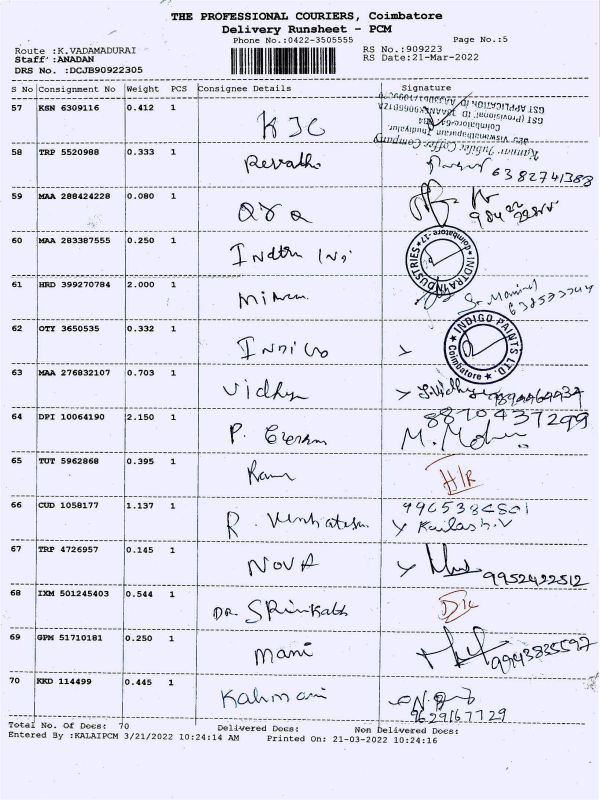 THE PROFESSIONAL COURIERS, Coimbatore
Delivery Runsheet - PCM
Phone No.:0422-3505555 Page No.:5
Route :K.VADAMADURAI RS No.:909223
Staff :ANADAN RS Date:21-Mar-2022
DRS No. :DCJB90922305
S No Consignment No Weight PCS Consignee Details Signature
57 KSN 6309116 0.412 1 KJC
Kannar Jubilee Coffee Company
Coimbatore-641
GST (Provisional) ID
GST APPLICATION ID
58 TRP 5520988 0.333 1 Revathi 6382741388
59 MAA 288424228 0.080 1
60 MAA 283387555 0.250 1 Indtra Ini INDTRA INDUSTRIES Coimbatore-17
61 HRD 399270784 2.000 1
62 OTY 3650535 0.332 1 Indigo INDIGO PAINTS LTD. Coimbatore
63 MAA 276832107 0.703 1 Vidhya S.Vidhya
64 DPI 10064190 2.150 1 P. 8870437299
M. Mohan
65 TUT 5962868 0.395 1 Ram
66 CUD 1058177 1.137 1 R. Venkatesh 9965384501
Kailash.V
67 TRP 4726957 0.145 1 NOVA 9952422512
68 IXM 501245403 0.544 1 DR SRinkath
69 GPM 51710181 0.250 1 mani 9943835597
70 KKD 114499 0.445 1 Kalamani
9629167729
Total No. Of Docs: 70 Delivered Docs: Non Delivered Docs:
Entered By :KALAIPCM 3/21/2022 10:24:14 AM Printed On: 21-03-2022 10:24:16